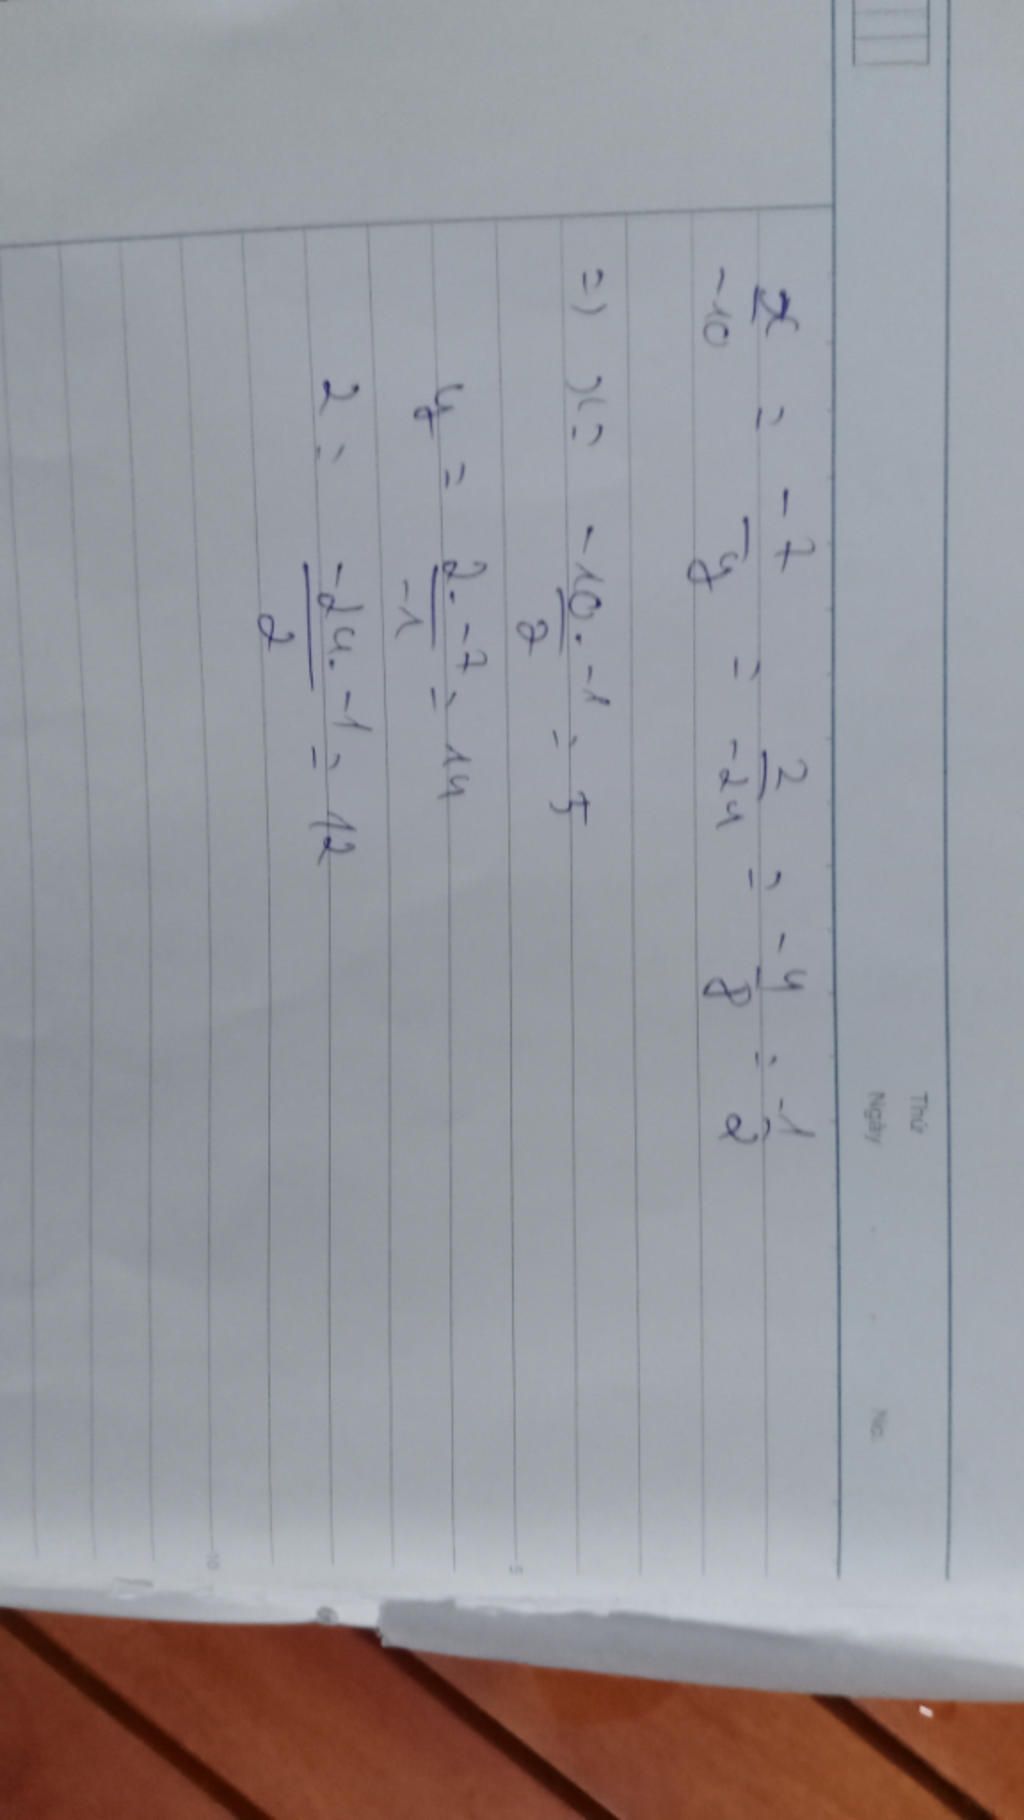 Thứ
Ngày . . No.
x/-10 = -7/y = 2/-24 = -4/8 = -1/2
=) x = -10. -1/2 = 5
y = 2. -7/-1 = 14
2 = -24. -1/2 = 12
5
10